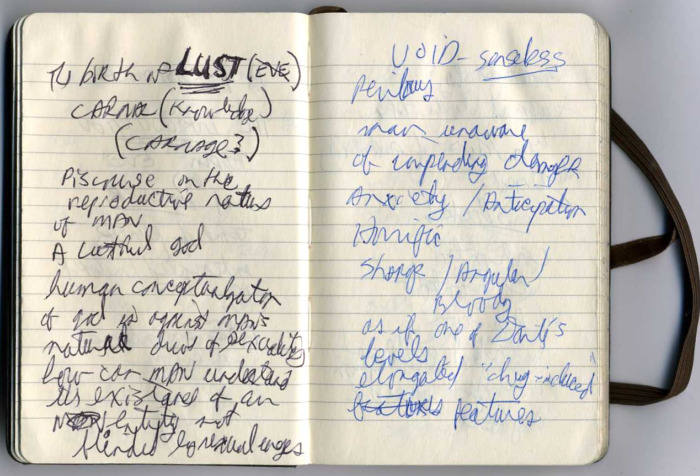 birth of LUST (EVE)
CARNAL (Knowledge)
(CARNAGE?)
Discourse on the
reproductive natures
of MAN
A Lustful god
human conceptualization
of god is against MAN'S
natural drives of sexuality
how can MAN understand
existance of an
entity not
sexual urges
VOID - senseless
Perilous
man unaware
of impending danger
Anxiety / Anticipation
Horrific
Sharp / Angular /
Bloody
as if one of Dante's
levels
elongated "drug-induced"
features